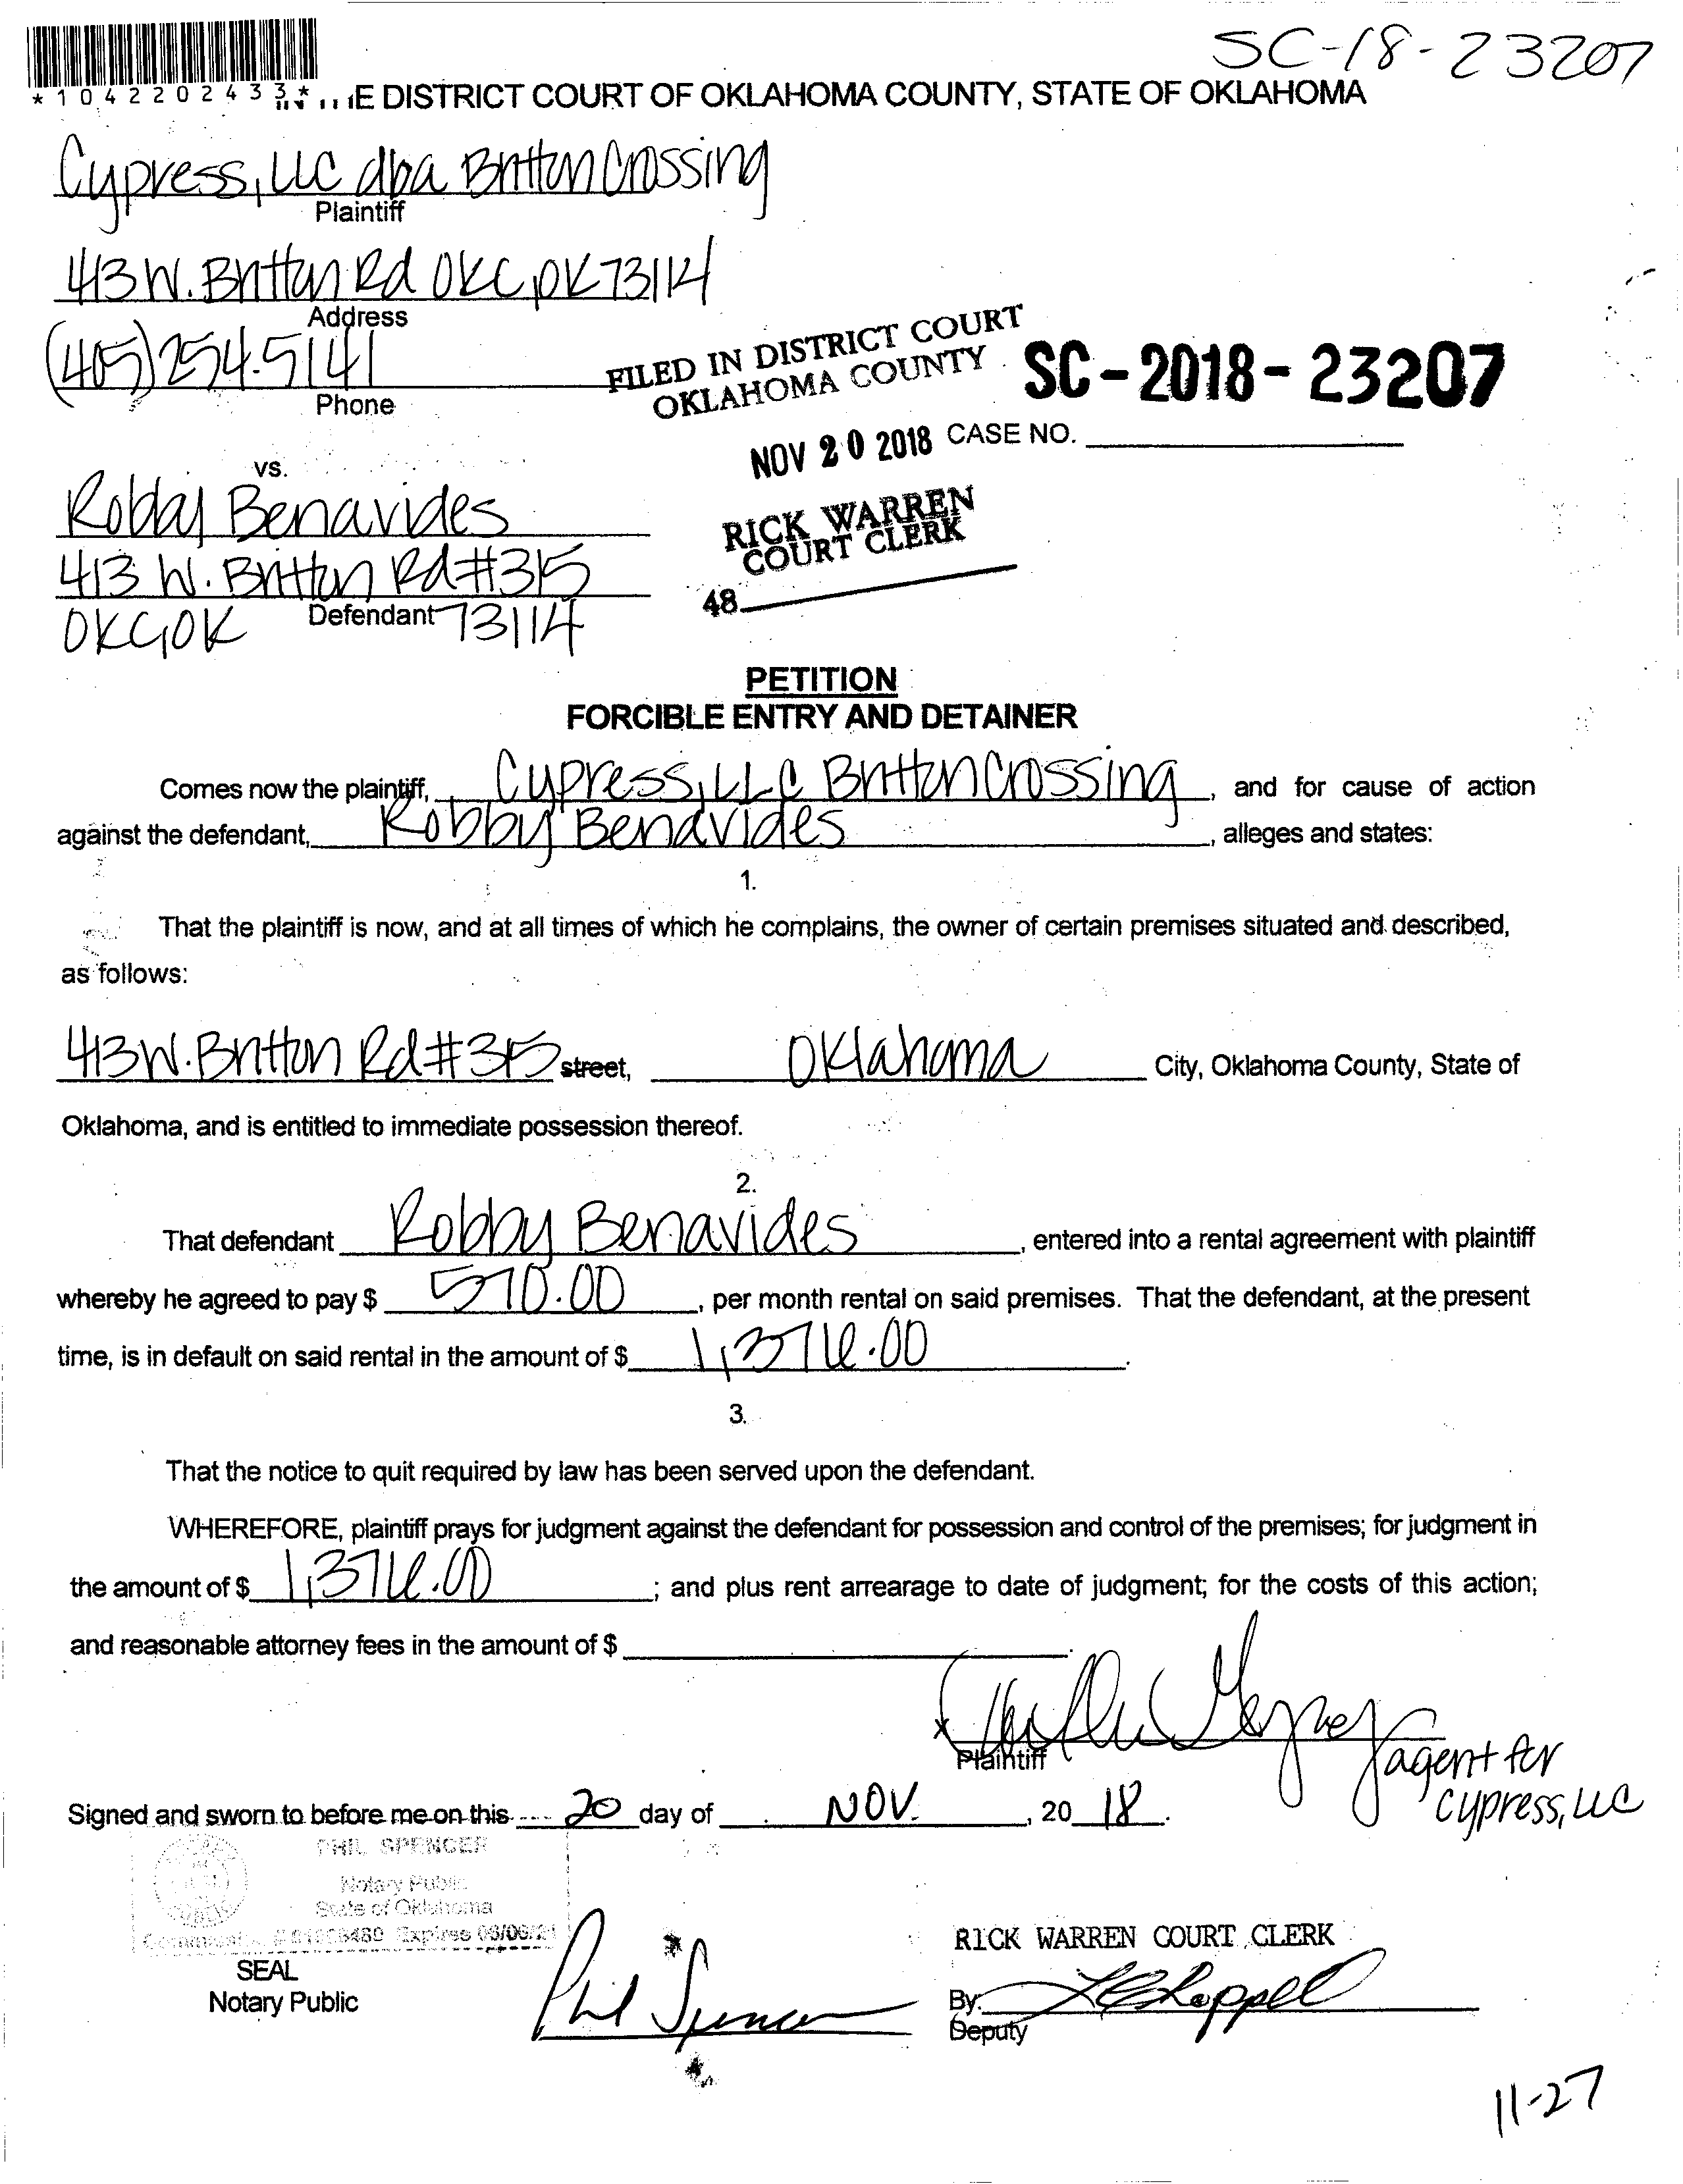 SC-18-23207
*1042202433* E DISTRICT COURT OF OKLAHOMA COUNTY, STATE OF OKLAHOMA
Cypress, LLC dba Britton Crossing
Plaintiff
413 W. Britton Rd OKC, OK 73114
Address
(405) 254-5141
Phone
FILED IN DISTRICT COURT
OKLAHOMA COUNTY
SC-2018-23207
NOV 20 2018 CASE NO.
vs.
RICK WARREN
COURT CLERK
48
Robby Benavides
413 W. Britton Rd #315
Defendant
OKC, OK 73114
PETITION
FORCIBLE ENTRY AND DETAINER
Comes now the plaintiff, Cypress, LLC Britton Crossing, and for cause of action
against the defendant, Robby Benavides, alleges and states:
1.
That the plaintiff is now, and at all times of which he complains, the owner of certain premises situated and described,
as follows:
413 W. Britton Rd #315 street, Oklahoma City, Oklahoma County, State of
Oklahoma, and is entitled to immediate possession thereof.
2.
That defendant Robby Benavides, entered into a rental agreement with plaintiff
whereby he agreed to pay $ 570.00, per month rental on said premises. That the defendant, at the present
time, is in default on said rental in the amount of $ 1,376.00.
3.
That the notice to quit required by law has been served upon the defendant.
WHEREFORE, plaintiff prays for judgment against the defendant for possession and control of the premises; for judgment in
the amount of $ 1,376.00; and plus rent arrearage to date of judgment; for the costs of this action;
and reasonable attorney fees in the amount of $
x
Plaintiff
agent for
Cypress, LLC
Signed and sworn to before me on this 20 day of NOV., 2018.
PHIL SPENCER
Notary Public
State of Oklahoma
Expires 06/06/21
SEAL
Notary Public
Phil Spencer
RICK WARREN COURT CLERK
By:
Deputy
11-27